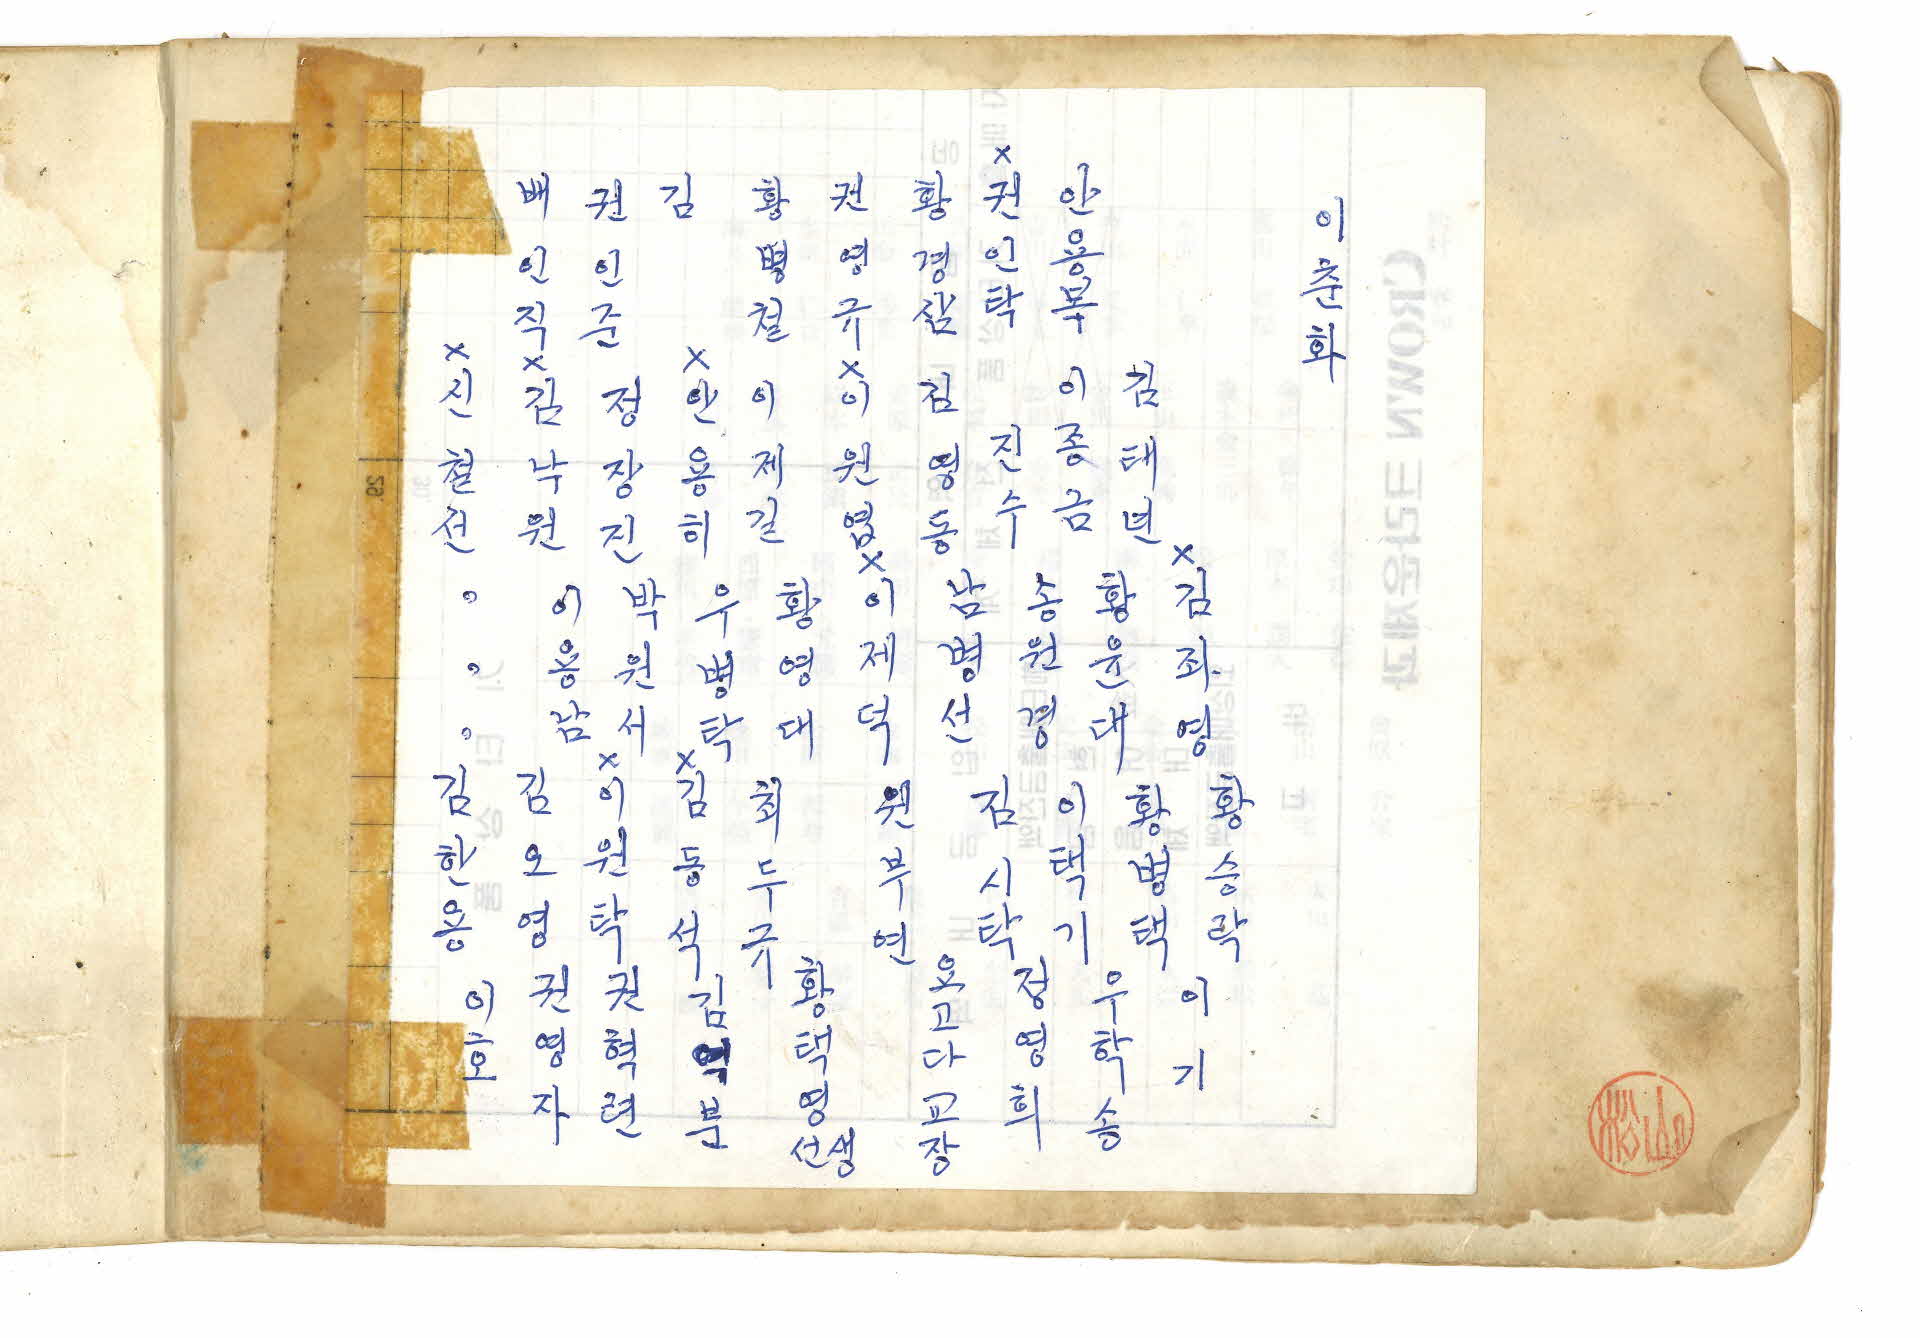 이춘화
안용복
권인탁
황경삼
권영규
황병철
김
권인준
배인직
김태년
이종금
진수
김영동
이원엽
이제길
안용히
정장진
김낙원
신철선
김죄영
황윤대
송원경
남병선
이제덕
황영대
우병탁
박원서
이용남
황승락
황병택
이택기
김시탁
원부연
최두규
김동석
이원탁
김오영
김한용
이기
우학송
정영희
옥고다교장
황택영선생
김 분
권혁련
권영자
이호
CROWN 크라운제과
29
30